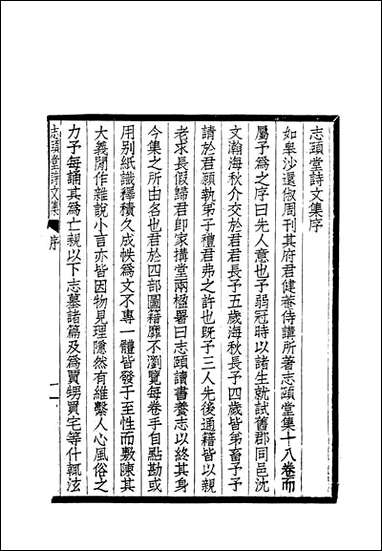 志頤堂詩文集序
如皋沙還俶周刊其府君健菴侍講所著志頤堂集十八卷而
屬予為之序曰先人意也予弱冠時以諸生就試舊郡同邑沈
文瀚海秋介交於君君長予五歲海秋長予四歲皆弟畜予予
請於君願執弟子禮君弗之許也既予三人先後通籍皆以親
老求長假歸君即家搆堂兩楹署曰志頤讀書養志以終其身
今集之所由名也君於四部圖籍靡不瀏覽每卷手自點勘或
用別紙識釋積久成帙為文不專一體皆發于至性而敷陳其
大義閒作雜說小言亦皆因物見理隱然有維繫人心風俗之
力予每誦其為亡親以下志墓諸篇及為買甥買宅等什輒泫
志頤堂詩文集
序
一